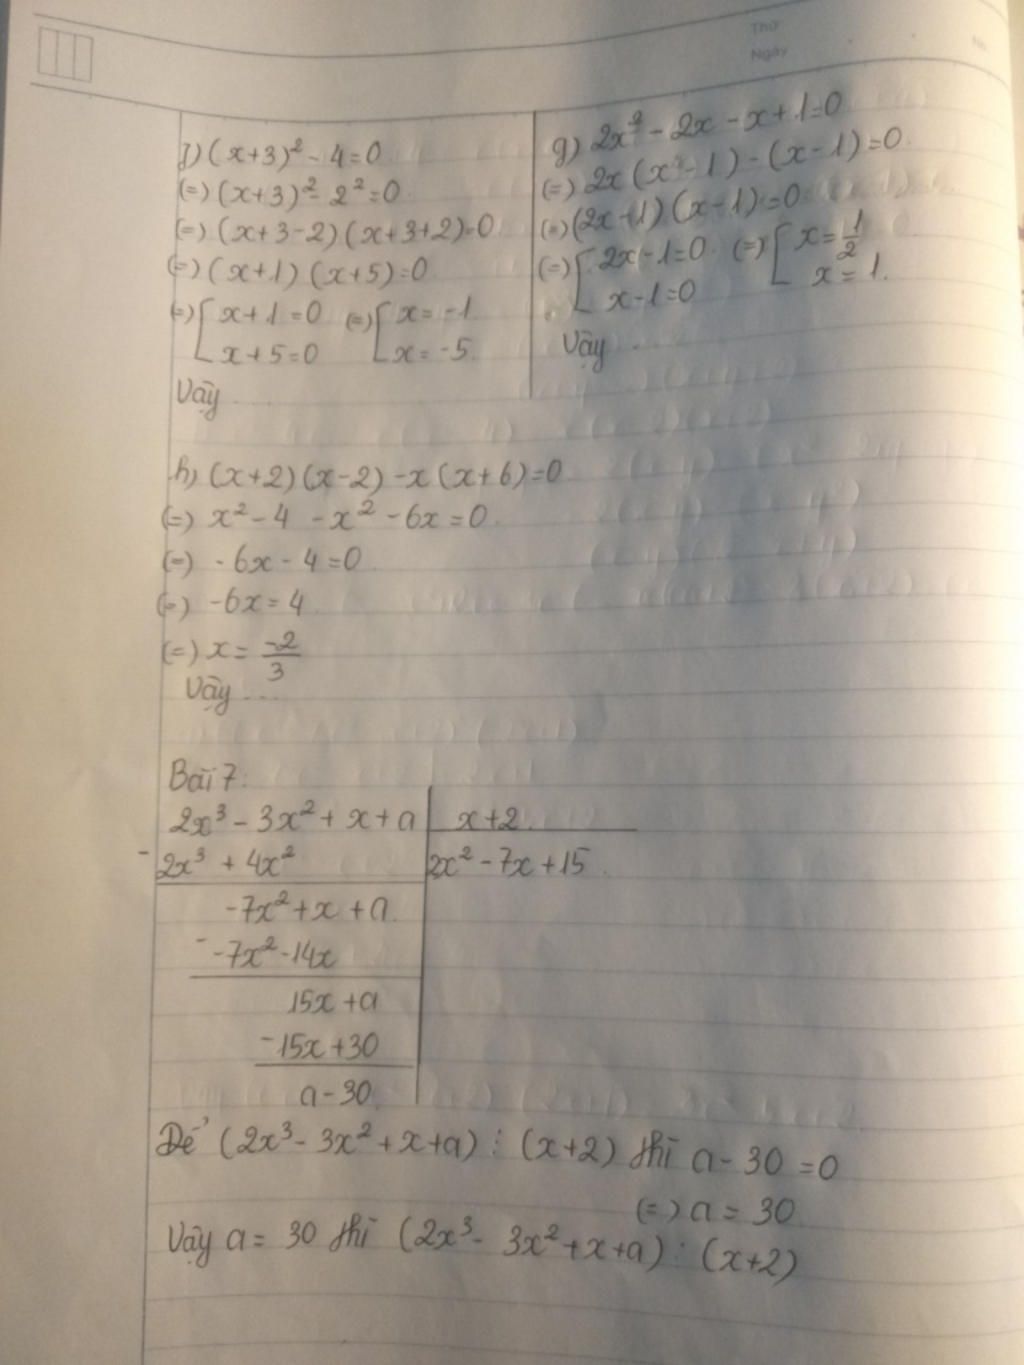 Thứ
Ngày
No.
f) (x+3)² - 4=0
(=) (x+3)² - 2² =0
(=) (x+3-2) (x+3+2)=0
(=) (x+1) (x+5)=0
(=) [ x+1=0 (=) [ x= -1
x+5=0 x= -5.
Vậy ...
g) 2x² - 2x - x + 1=0
(=) 2x (x - 1) - (x - 1) =0
(=) (2x-1) (x-1)=0
(=) [ 2x-1=0 (=) [ x= 1/2
x-1=0 x= 1.
Vậy ...
h) (x+2) (x-2) -x (x+6)=0
(=) x² - 4 - x² - 6x = 0.
(=) -6x - 4 =0
(=) -6x= 4
(=) x= -2/3
Vậy ...
Bài 7:
2x³ - 3x² + x + a | x+2
- 2x³ + 4x² | 2x² - 7x + 15
-7x² + x + a.
- -7x² - 14x
15x + a
- 15x + 30
a - 30
Để (2x³ - 3x² + x + a) ⋮ (x+2) thì a - 30 = 0
(=) a = 30
Vậy a = 30 thì (2x³ - 3x² + x + a) ⋮ (x+2)